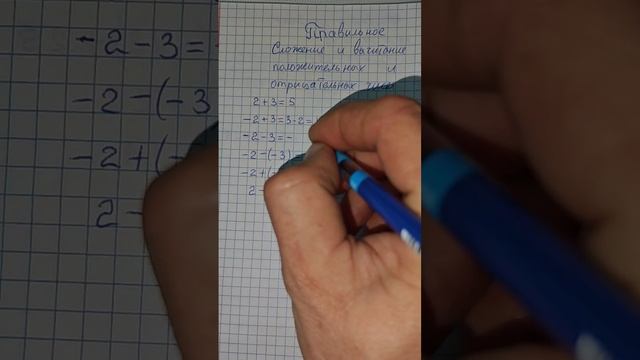 Правильное
Сложение и вычитание
положительных и
отрицательных чисел
2 + 3 = 5
-2 + 3 = 3 - 2 =
-2 - 3 = -
-2 - (-3)
-2 + (-
2 -